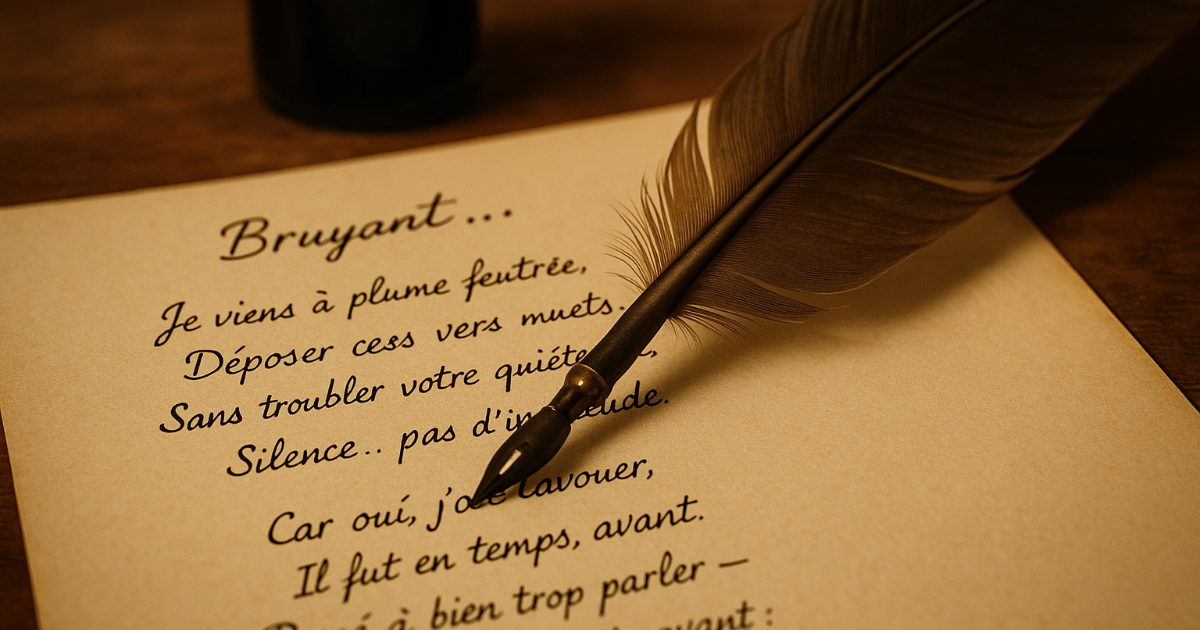 Bruyant...
Je viens à plume feutrée,
Déposer cess vers muets.
Sans troubler votre
Silence.. pas
Car oui, lavouer,
Il fut en temps, avant.
à bien trop parler —